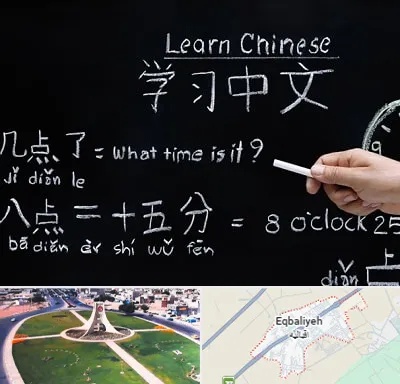 Learn Chinese
学习中文
几点了 = what time is it?
jǐ diǎn le
八点二十五分 = 8 o'clock 25
bā diǎn èr shí wǔ fēn
diǎn 上
9
Eqbaliyeh
اقبالیه